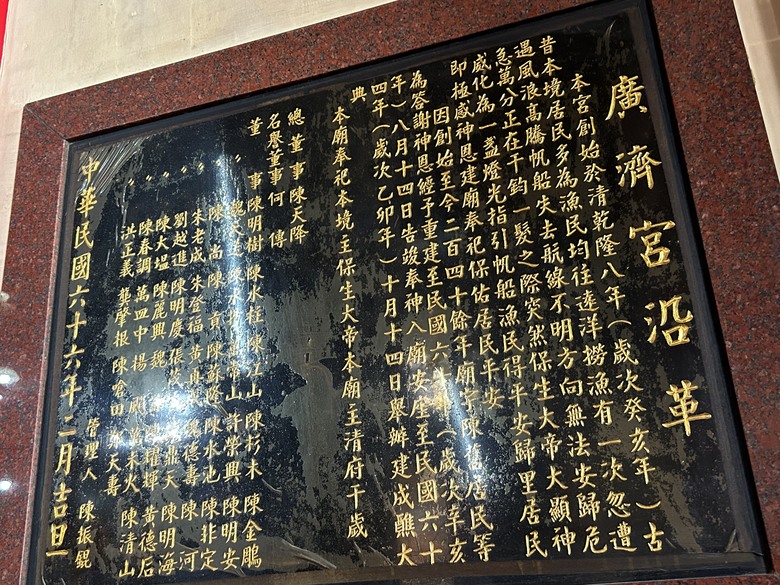 廣濟宮沿革
本宮創始於清乾隆八年(歲次癸亥年)古
昔本境居民多為漁民均往遠洋撈漁有一次忽遭
遇風浪高騰帆船失去航線不明方向無法安歸危
急萬分正在千鈞一髮之際突然保生大帝大顯神
威化為一盞燈光指引帆船漁民得平安歸里居民
即極感神恩建廟奉祀保佑居民平安
因創始至今二百四十餘年廟宇陳舊居民等
為答謝神恩經予重建至民國六十年(歲次辛亥
年)八月十四日告竣奉神入廟安座至民國六十
四年(歲次乙卯年)十月十四日舉辦建成醮大
典
本廟奉祀本境主保生大帝本廟主清府千歲
總董事陳天降
名譽董事何 傳
董 事陳明樹 陳水柱 陳江山 陳杉木 陳金鵰
〃 許榮興 陳明安
〃 陳 尚 陳 貢 陳蘇隆 陳水池 陳非定
〃 朱老成 朱登福 魏德壽 陳 河
〃 劉越進 陳明慶 陳明海
〃 陳大塭 陳麗興 黃德石
〃 陳春調 萬四中 陳清山
洪正義 龔肇根 陳嗆田
管理人 陳振錕
中華民國六十六年二月吉旦